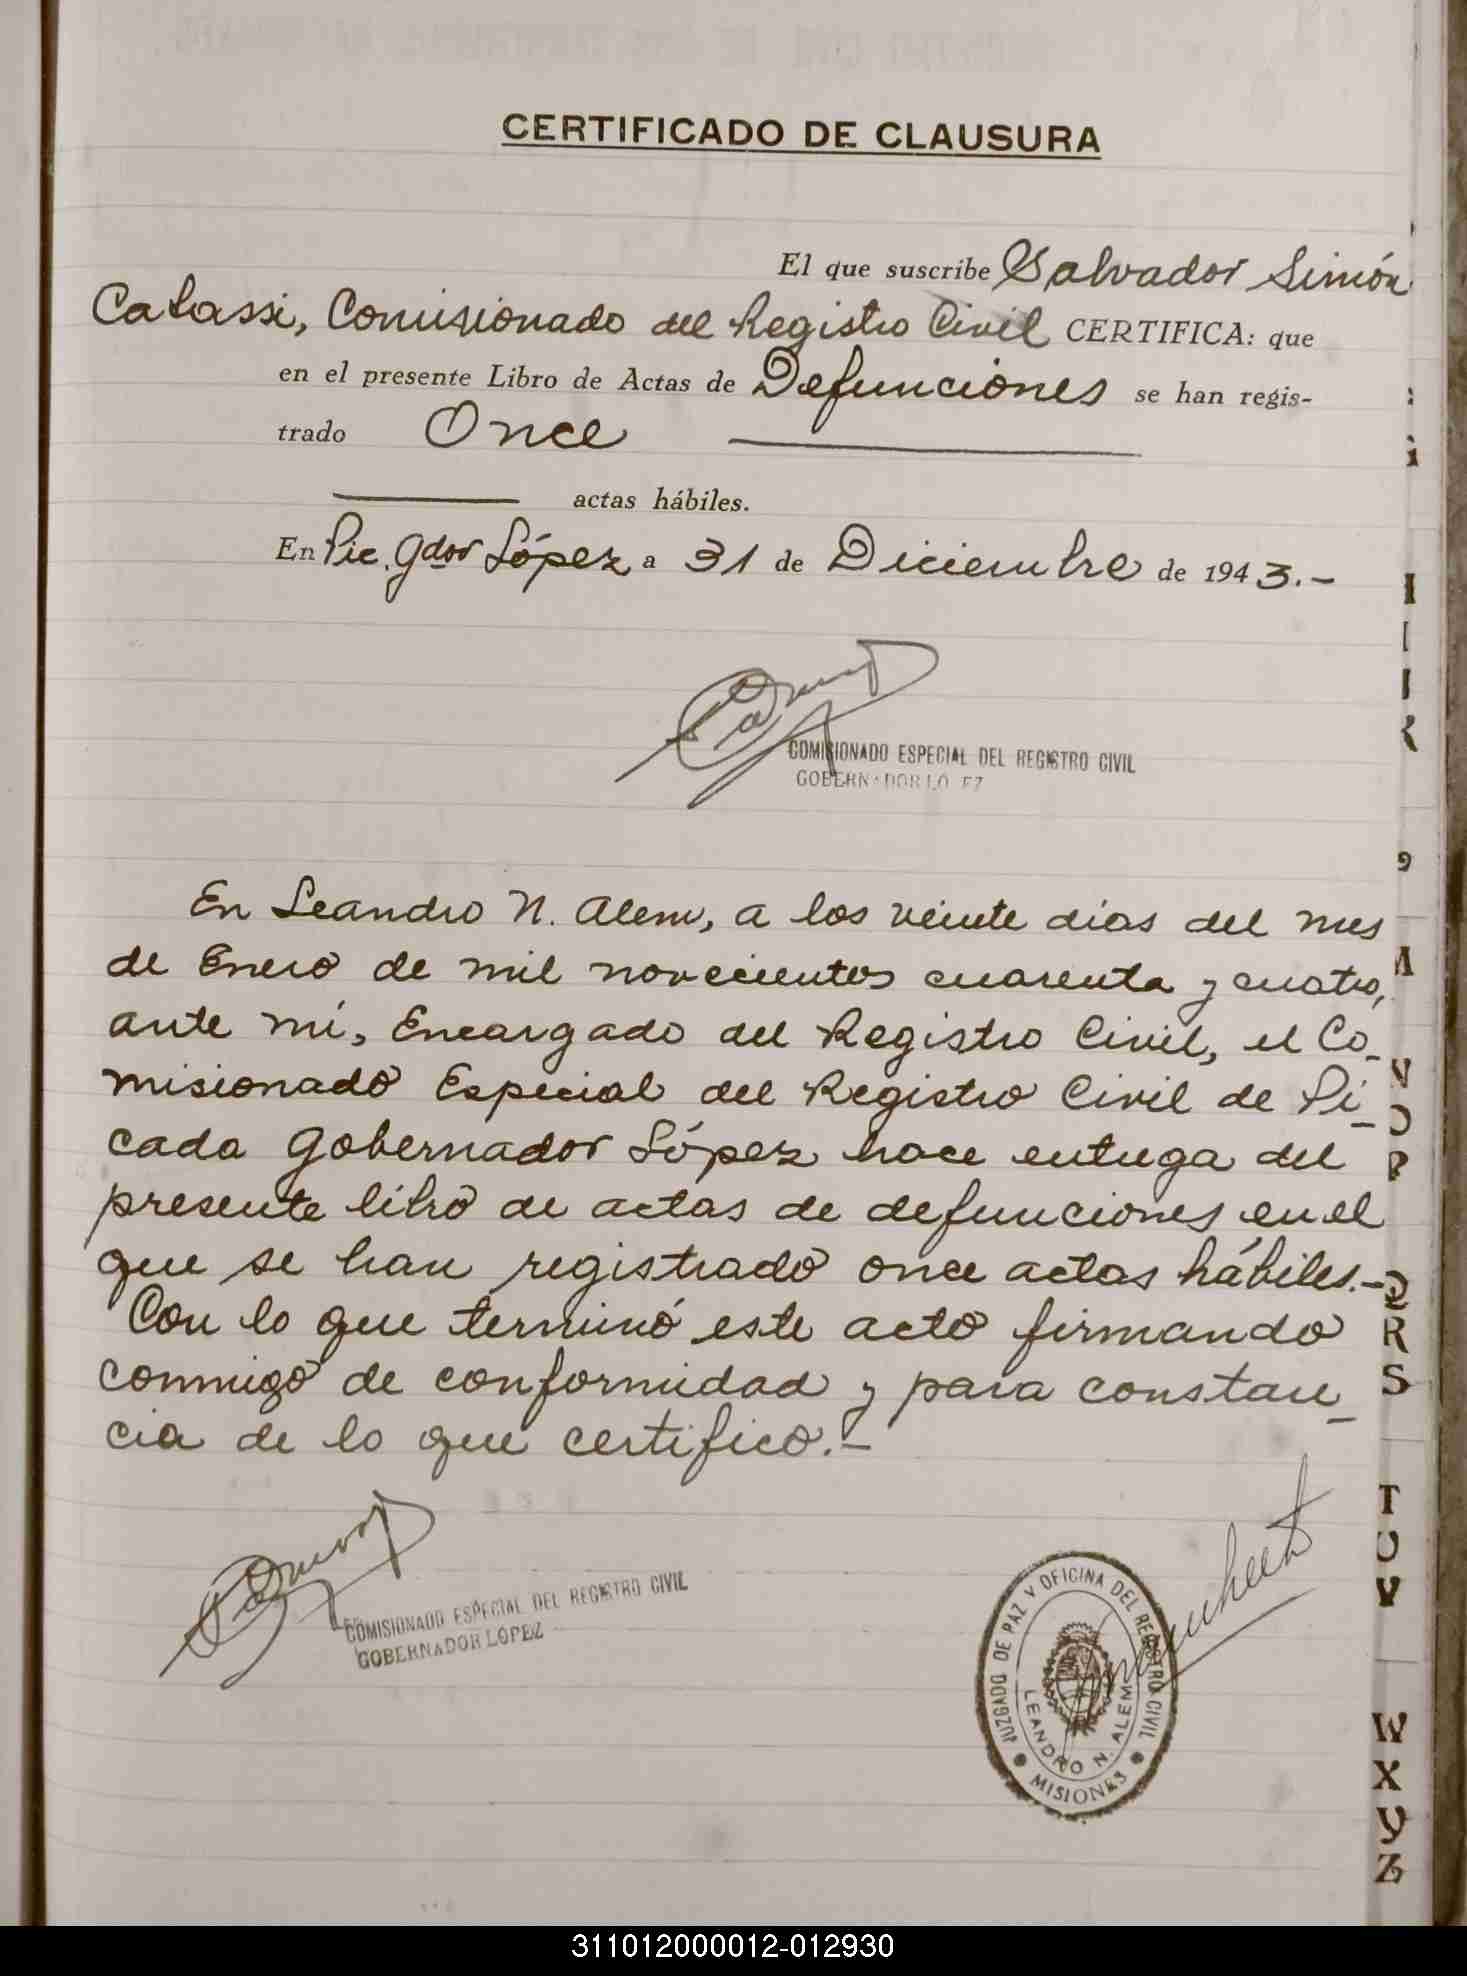 CERTIFICADO DE CLAUSURA
El que suscribe Salvador Simón
Catassi, Comisionado del Registro Civil CERTIFICA: que
en el presente Libro de Actas de Defunciones se han regis-
trado Once
actas hábiles.
En Pic. Gdor López a 31 de Diciembre de 1943.-
COMISIONADO ESPECIAL DEL REGISTRO CIVIL
GOBERNADOR LOPEZ
En Leandro N. Alem, a los veinte días del mes
de Enero de mil novecientos cuarenta y cuatro,
ante mí, Encargado del Registro Civil, el Co-
misionado Especial del Registro Civil de Pi-
cada Gobernador López hace entrega del
presente libro de actas de defunciones en el
que se han registrado once actas hábiles.-
Con lo que terminó este acto firmando
conmigo de conformidad y para constan-
cia de lo que certifico.-
COMISIONADO ESPECIAL DEL REGISTRO CIVIL
GOBERNADOR LOPEZ
JUZGADO DE PAZ Y OFICINA DEL REGISTRO CIVIL
LEANDRO N. ALEM
MISIONES
R
S
T
U
V
W
X
Y
Z
311012000012-012930